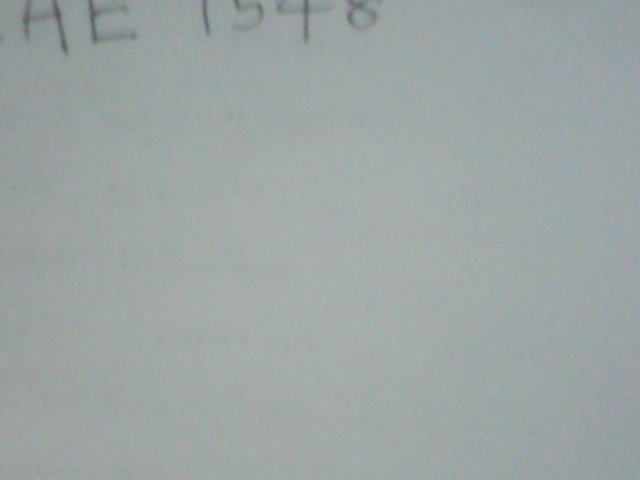 AE 1548